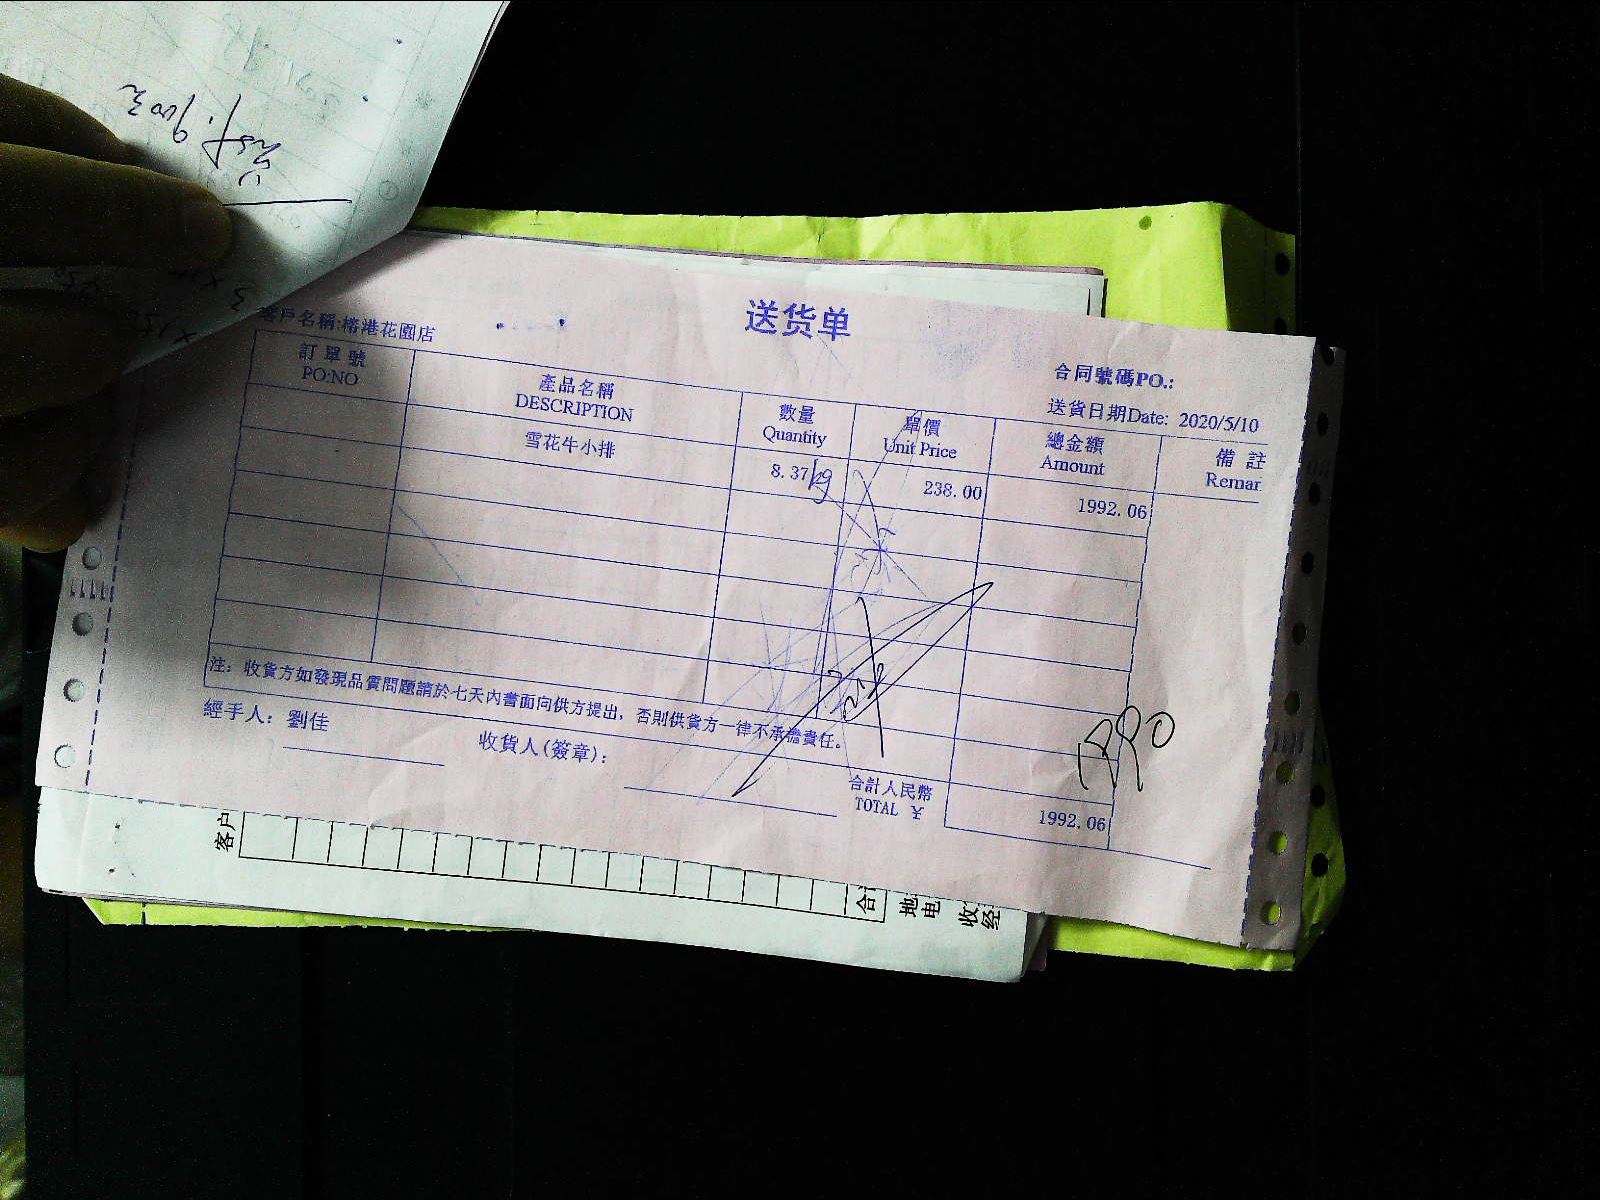 送货单
客戶名稱:榕港花園店
合同號碼PO.:
送貨日期Date: 2020/5/10
訂單號 產品名稱 數量 單價 總金額 備註
PO:NO DESCRIPTION Quantity Unit Price Amount Remar
雪花牛小排 8.37kg 238.00 1992.06
注：收貨方如發現品質問題請於七天內書面向供方提出，否則供貨方一律不承擔責任。
經手人：劉佳
收貨人(簽章)：
合計人民幣
TOTAL ￥ 1992.06
客户
合
地
电
收
经